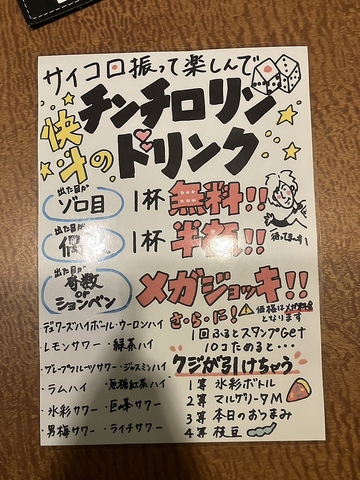 サイコロ振って楽しんで
チンチロリン
快才の
ドリンク
出た目が
ゾロ目
1杯 無料!!
出た目が
1杯 半額!!
待ってます!
出た目が
奇数
or
ションベン
メガジョッキ!!
さ・ら・に!
価格はメガ料金
となります
1回ふるとスタンプGet
10コためると・・・
クジが引けちゃう
1等 氷彩ボトル
2等 マルゲリータM
3等 本日のおつまみ
4等 枝豆
・デュワーズハイボール・ウーロンハイ
・レモンサワー ・緑茶ハイ
・グレープフルーツサワー・ジャスミンハイ
・ラムハイ ・無糖紅茶ハイ
・氷彩サワー ・巨峰サワー
・男梅サワー ・ライチサワー